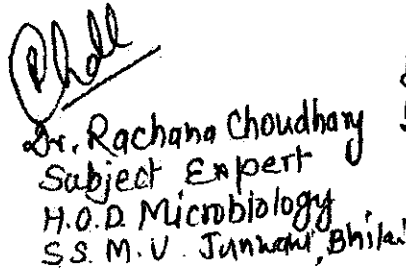 Dr. Rachana Choudhary
Subject Expert
H.O.D. Microbiology
S.S. M.V. Junwani, Bhilai